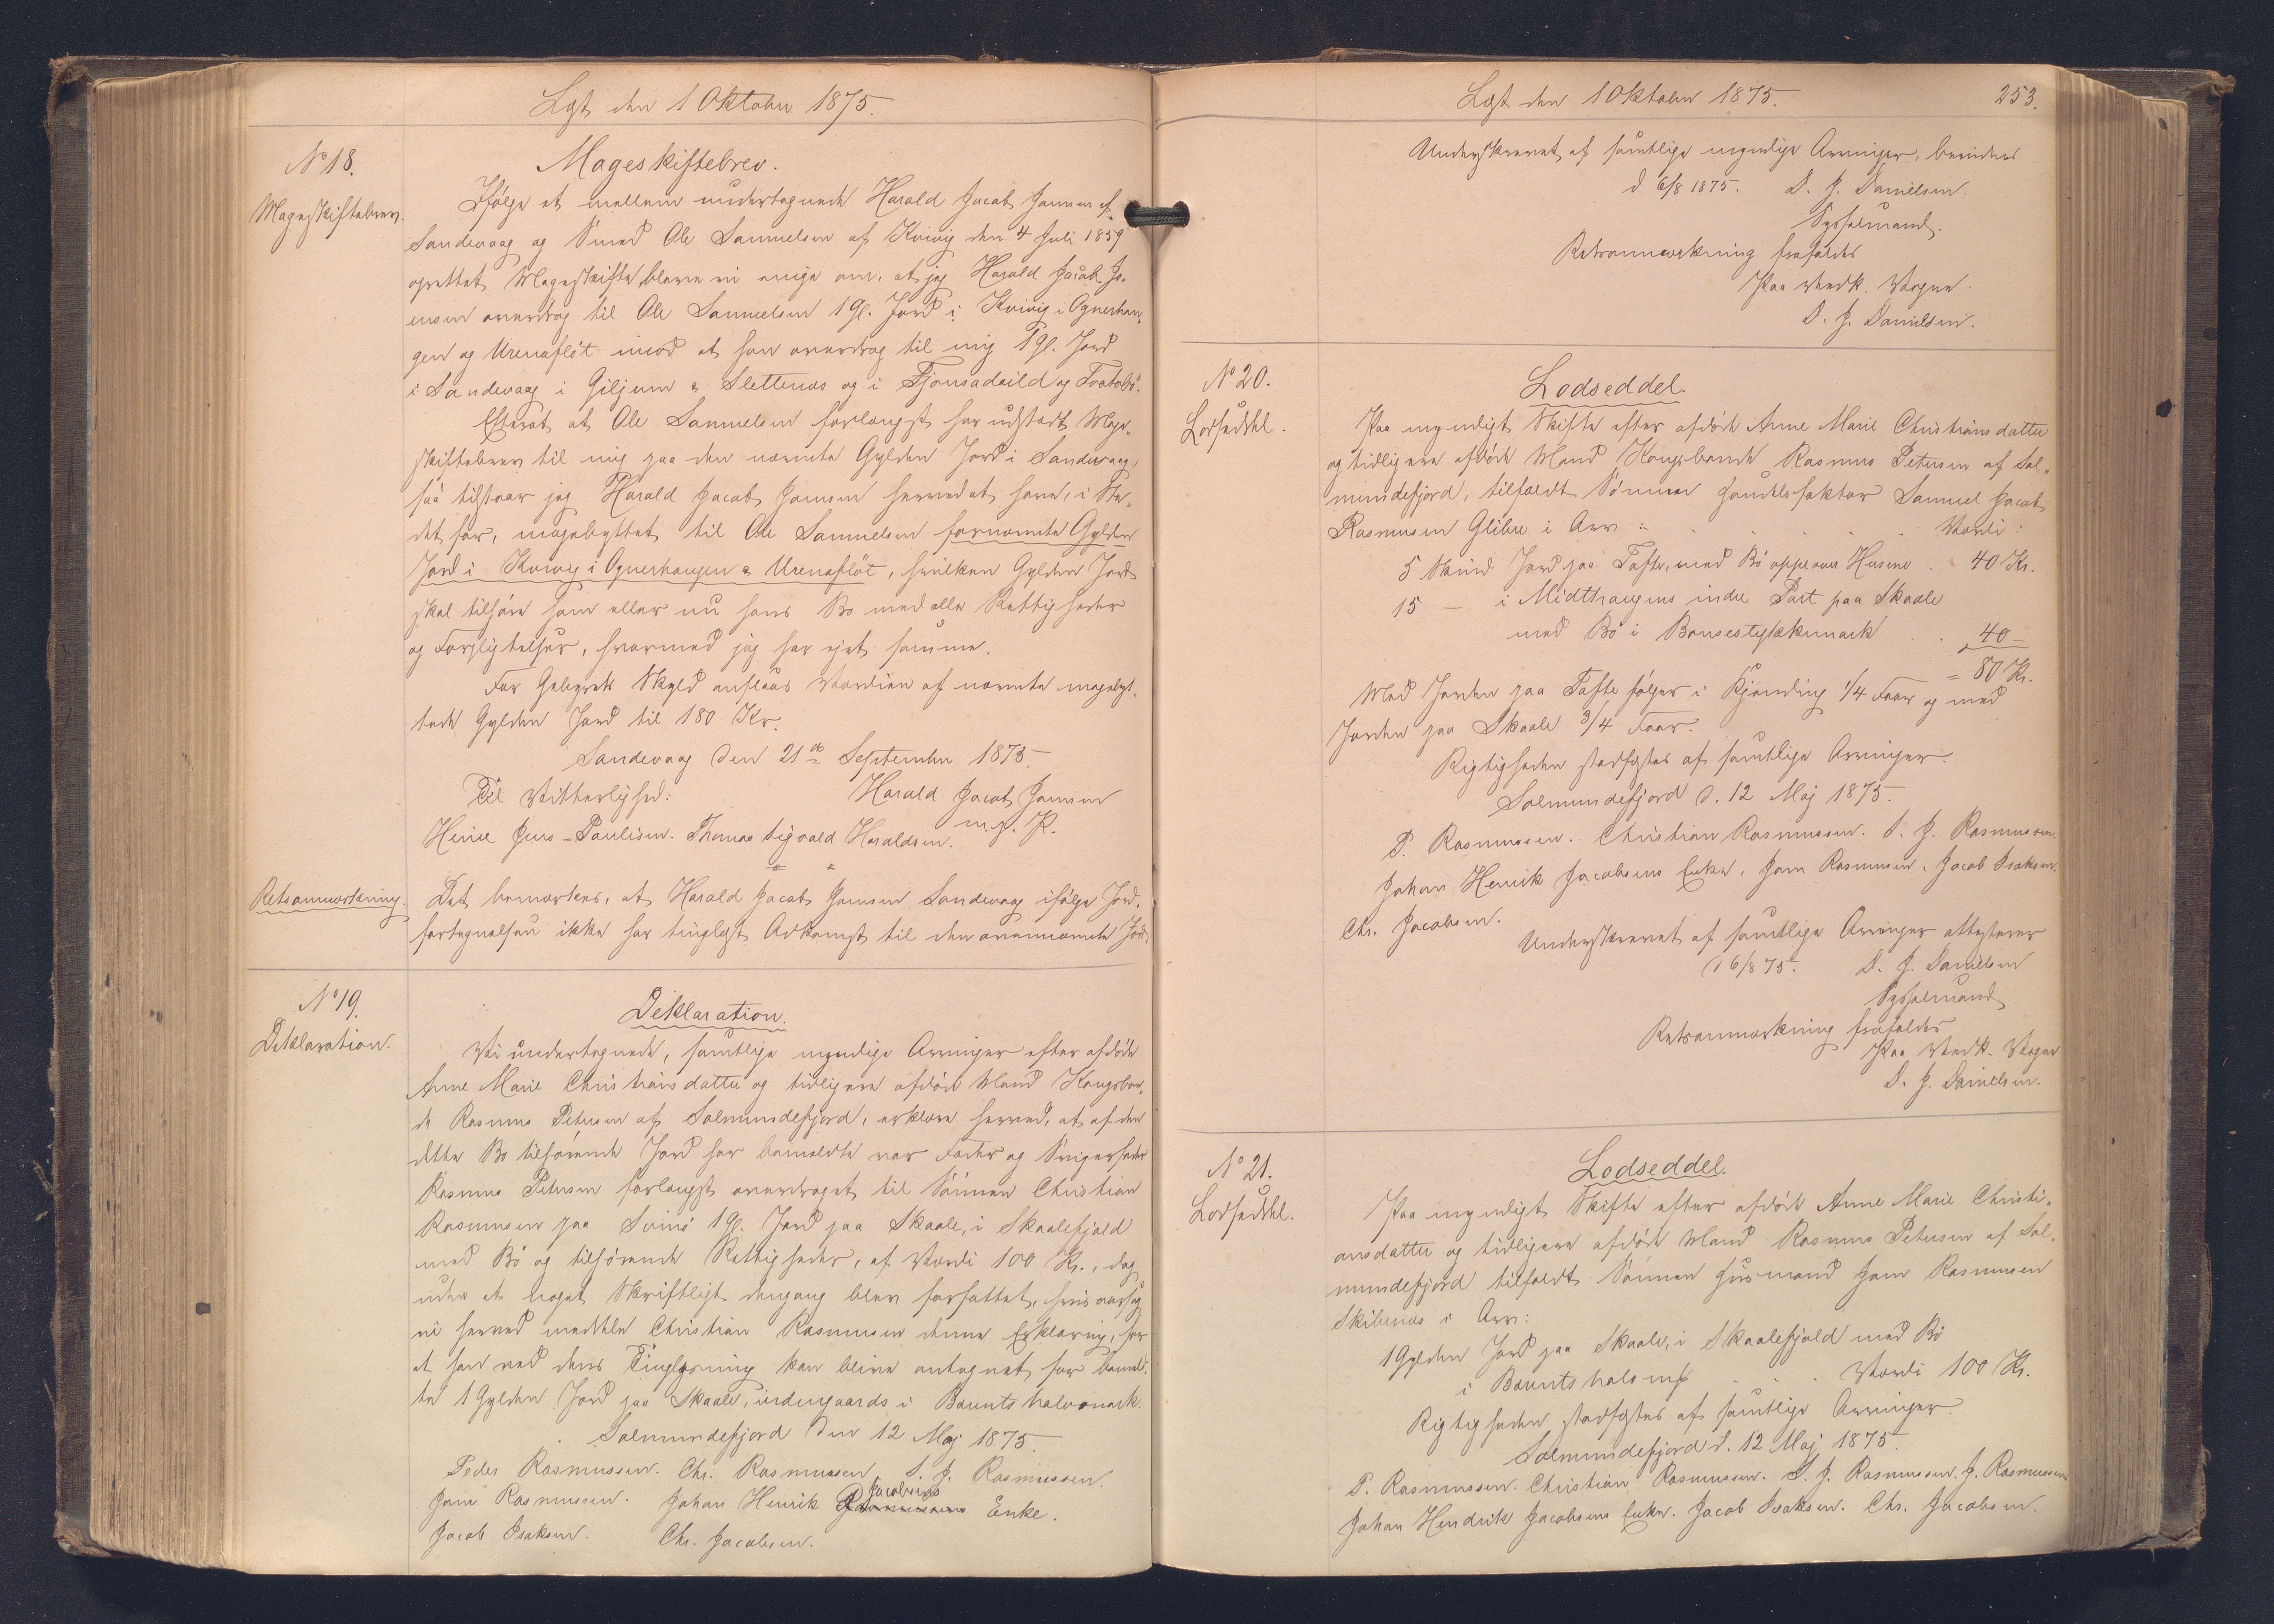 Lgt den 1 Oktober 1875.
No 18.
Mageskiftebrev.
Mageskiftebrev.
Ifölge et mellem undertegnede Harald Jacob Joensen af
Sandevaag og Smed Ole Samuelsen af Kvivig den 4 Juli 1859
oprettet Mageskifte, bleve vi enige om, at jeg Harald Jacob Jo-
ensen overdrog til Ole Samuelsen 1 Gl. Jord i Kvivig i Ognerhau-
gen og Urenaflöt imod at han overdrog til mig 1 Gl. Jord
i Sandevaag i Giljum & Slettenæs og i Fjonsadeild og Tratobö.
Efterat at Ole Samuelsen forlængst har udstedt Mage-
skiftebrev til mig paa den nævnte Gylden Jord i Sandevaag,
saa tilstaar jeg Harald Jacob Joensen herved at have, i Ste-
det for, magebyttet til Ole Samuelsen fornævnte Gylden
Jord i Kvivig i Ognerhaugen & Urenaflöt, hvilken Gylden Jord
skal tilhöre ham eller nu hans Bo med alle Rettigheder
og Forpligtelser, hvormed jeg har ejet samme.
For Gebyrets Skyld anslaaes Værdien af nævnte magebyt-
tede Gylden Jord til 180 Kr.
Sandevaag den 21de September 1875.
Til Vitterlighed: Harald Jacob Joensen
m. p. P.
Heine Jens-Paulisen. Thomas Sigvald Haraldsen.
Retsanmærkning.
Det bemærkes, at Harald Jacob Joensen Sandevaag ifölge Jord-
fortegnelsen ikke har tinglyst Adkomst til den ovennævnte Jord
No 19.
Deklaration.
Deklaration.
Vi undertegnede, samtlige myndige Arvinger efter afdöde
Anne Marie Christiansdatter og tidligere afdöde Mand Kongsbon-
de Rasmus Petersen af Solmundefjord, erklære herved, at af den
dette Bo tilhörende Jord har bemeldte vor Fader og Svigerfader
Rasmus Petersen forlængst overdraget til Sönnen Christian
Rasmussen paa Svinö 1 Gl. Jord paa Skaale, i Skaalefjald
med Bö og tilhörende Rettigheder, af Værdi 100 Kr., dog
uden at noget Skriftligt dengang blev forfattet, hvis aarsag
vi herved meddele Christian Rasmussen denne Erklæring, for
at han ved dens Tinglysning kan blive antegnet for bemeld-
te 1 Gylden Jord paa Skaale, indengaards i Bountshalvomark.
Solmundefjord den 12 Maj 1875.
Peder Rasmussen. Chr. Rasmussen S. J. Rasmussen.
Joen Rasmussen. Johan Henrik Jacobsens Enke.
Jacob Isaksen. Chr. Jacobsen.
Lgt den 1 Oktober 1875. 253.
Underskrevet af samtlige myndige Arvinger, bevidnes
d 6/8 1875. D. J. Danielsen.
Sysselmand.
Retsanmærkning frafaldes
Paa Vedk. Vegne.
D. J. Danielsen.
No 20.
Lodseddel.
Lodseddel.
Paa myndigt Skifte efter afdöde Anne Marie Christiansdatter
og tidligere afdöde Mand Kongsbonde Rasmus Petersen af Sol-
mundefjord, tilfaldt Sönnen Handelsfaktor Samuel Jacob
Rasmussen Glibre i Arv: Værdi:
5 Skind Jord paa Tofte, med Bö oppe over Husene . 40 Kr.
15 — i Midthaugens indre Part paa Skaale
med Bö i Bonsestykkemark . . 40 —
= 80 Kr.
Med Jorden paa Tofte fölger i Kjending 1/4 Faar og med
Jorden paa Skaale 3/4 Faar.
Rigtigheden stadfæstes af samtlige Arvinger.
Solmundefjord d. 12 Maj 1875.
P. Rasmussen. Christian Rasmussen. S. J. Rasmussen.
Johan Henrik Jacobsens Enke. Joen Rasmussen. Jacob Isaksen.
Chr. Jacobsen.
Underskrevet af samtlige Arvinger attesterer
d 6/8 75. D. J. Danielsen
Sysselmand
Retsanmærkning frafaldes
Paa Vedk. Vegne
D. J. Danielsen.
No 21.
Lodseddel.
Lodseddel.
Paa myndigt Skifte efter afdöde Anne Marie Christi-
ansdatter og tidligere afdöde Mand Rasmus Petersen af Sol-
mundefjord tilfaldt Sönnen Husmand Joen Rasmussen
Skibenæs i Arv:
1 Gylden Jord paa Skaale, i Skaalefjald med Bö
i Bountshalom . . . Værdi 100 Kr.
Rigtigheden stadfæstes af samtlige Arvinger
Solmundefjord d. 12 Maj 1875.
P. Rasmussen. Christian Rasmussen. S. J. Rasmussen. J. Rasmussen
Johan Hendrik Jacobsens Enke. Jacob Isaksen. Chr. Jacobsen.